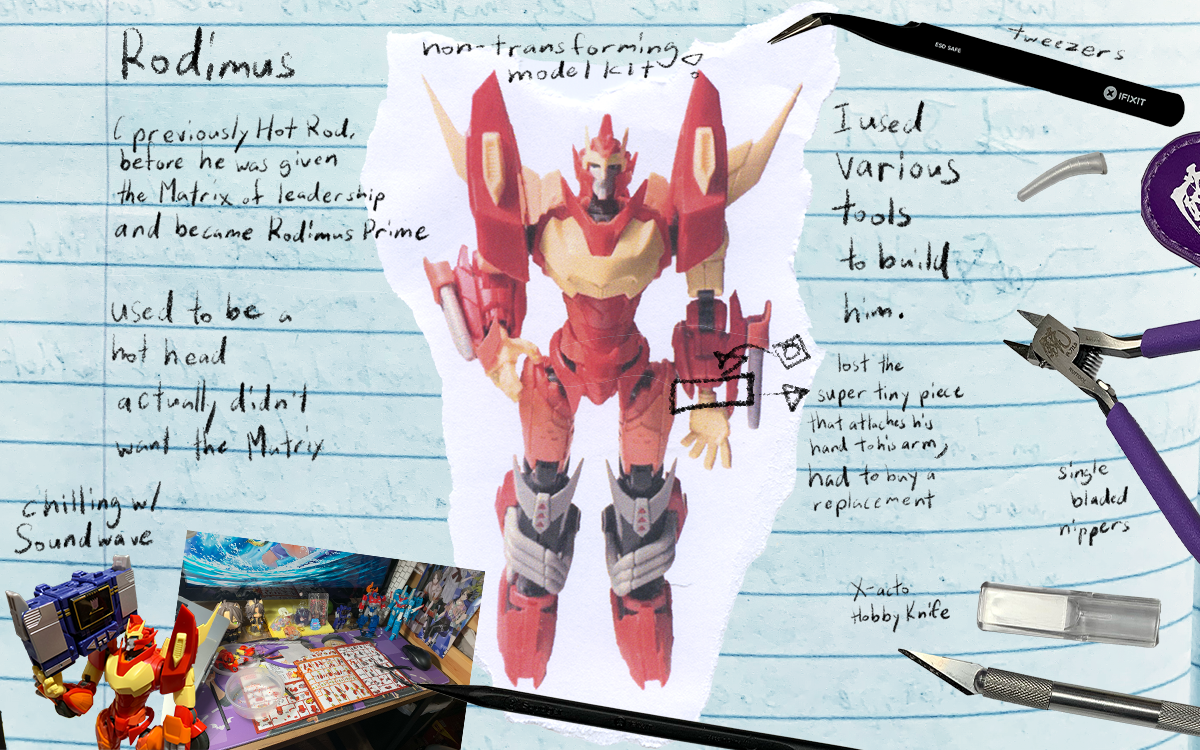 Rodimus
(previously Hot Rod,
before he was given
the Matrix of leadership
and became Rodimus Prime
used to be a
hot head
actually didn't
want the Matrix
chilling w/
Soundwave
non-transforming
model kit!
I used
various
tools
to build
him.
lost the
super tiny piece
that attaches his
hand to his arm,
had to buy a
replacement
tweezers
ESD SAFE
IFIXIT
single
bladed
nippers
X-acto
Hobby Knife